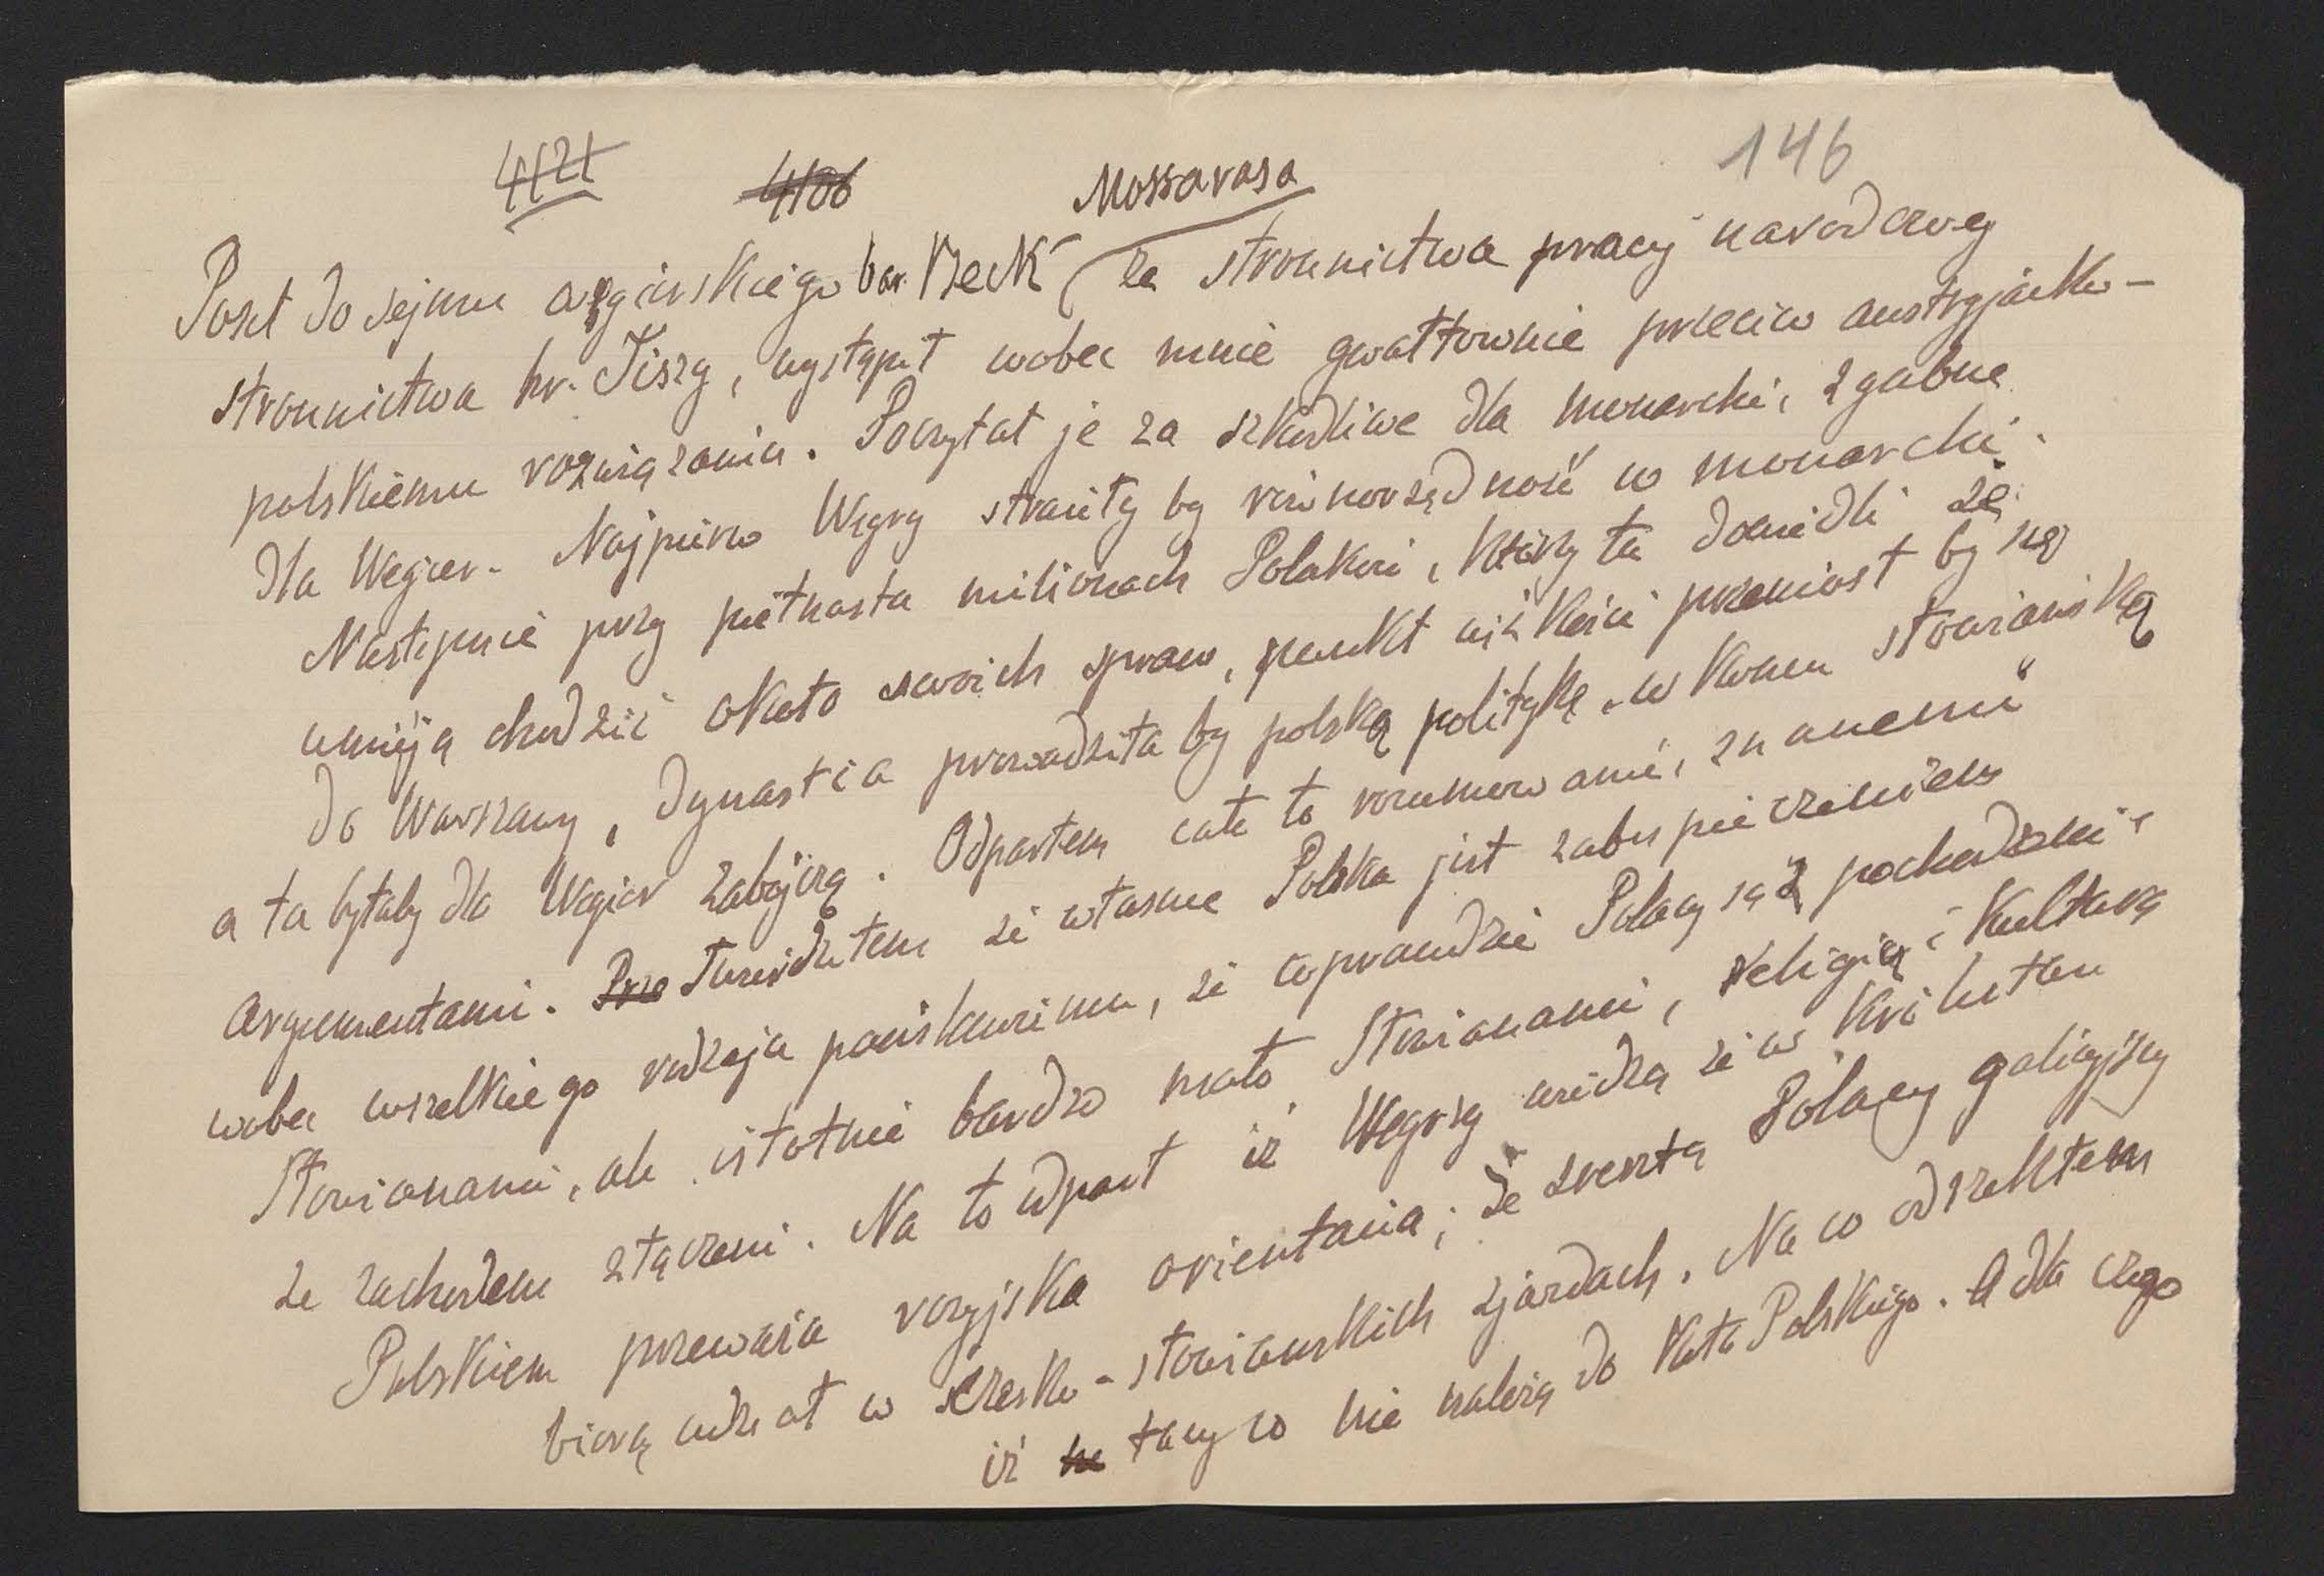 4121 4106 Mossavasa 146
Poseł do sejmu węgierskiego bar. Beck ze stronnictwa pracy narodowej
stronnictwa hr. Tiszy, wystąpił wobec mnie gwałtownie przeciw austryjacko-
polskiemu rozwiązaniu. Poczytał je za szkodliwe dla monarchii, zgubne
dla Węgier. Najpierw Węgry straciły by równorzędność w monarchii.
Następnie przy piętnastu milionach Polaków, którzy tu dowiedli że
umieją chodzić około swoich spraw, punkt ciężkości przeniósł by się
do Warszawy, Dynastia prowadziła by polską politykę, w końcu słowiańską
a ta byłaby dla Węgier zabójczą. Odparłem całe to rozumowanie, znanemi
argumentami. Prze Twierdziłem że własne Polska jest zabezpieczeniem
wobec wszelkiego rodzaju panslawizmu, że wprawdzie Polacy są z pochodzenia
Słowianami, ale istotnie bardzo mało Słowianami, religią i kulturą
ze zachodem złączeni. Na to odparł iż Węgrzy widzą że w Królestwu
Polskiem przeważa rosyjska orientacia; że zresztą Polacy galicyjscy
biorą udział w czesko-słowianskich zjazdach. Na co odrzekłem
iż tacy co nie należą do Koła Polskiego. A dla czego